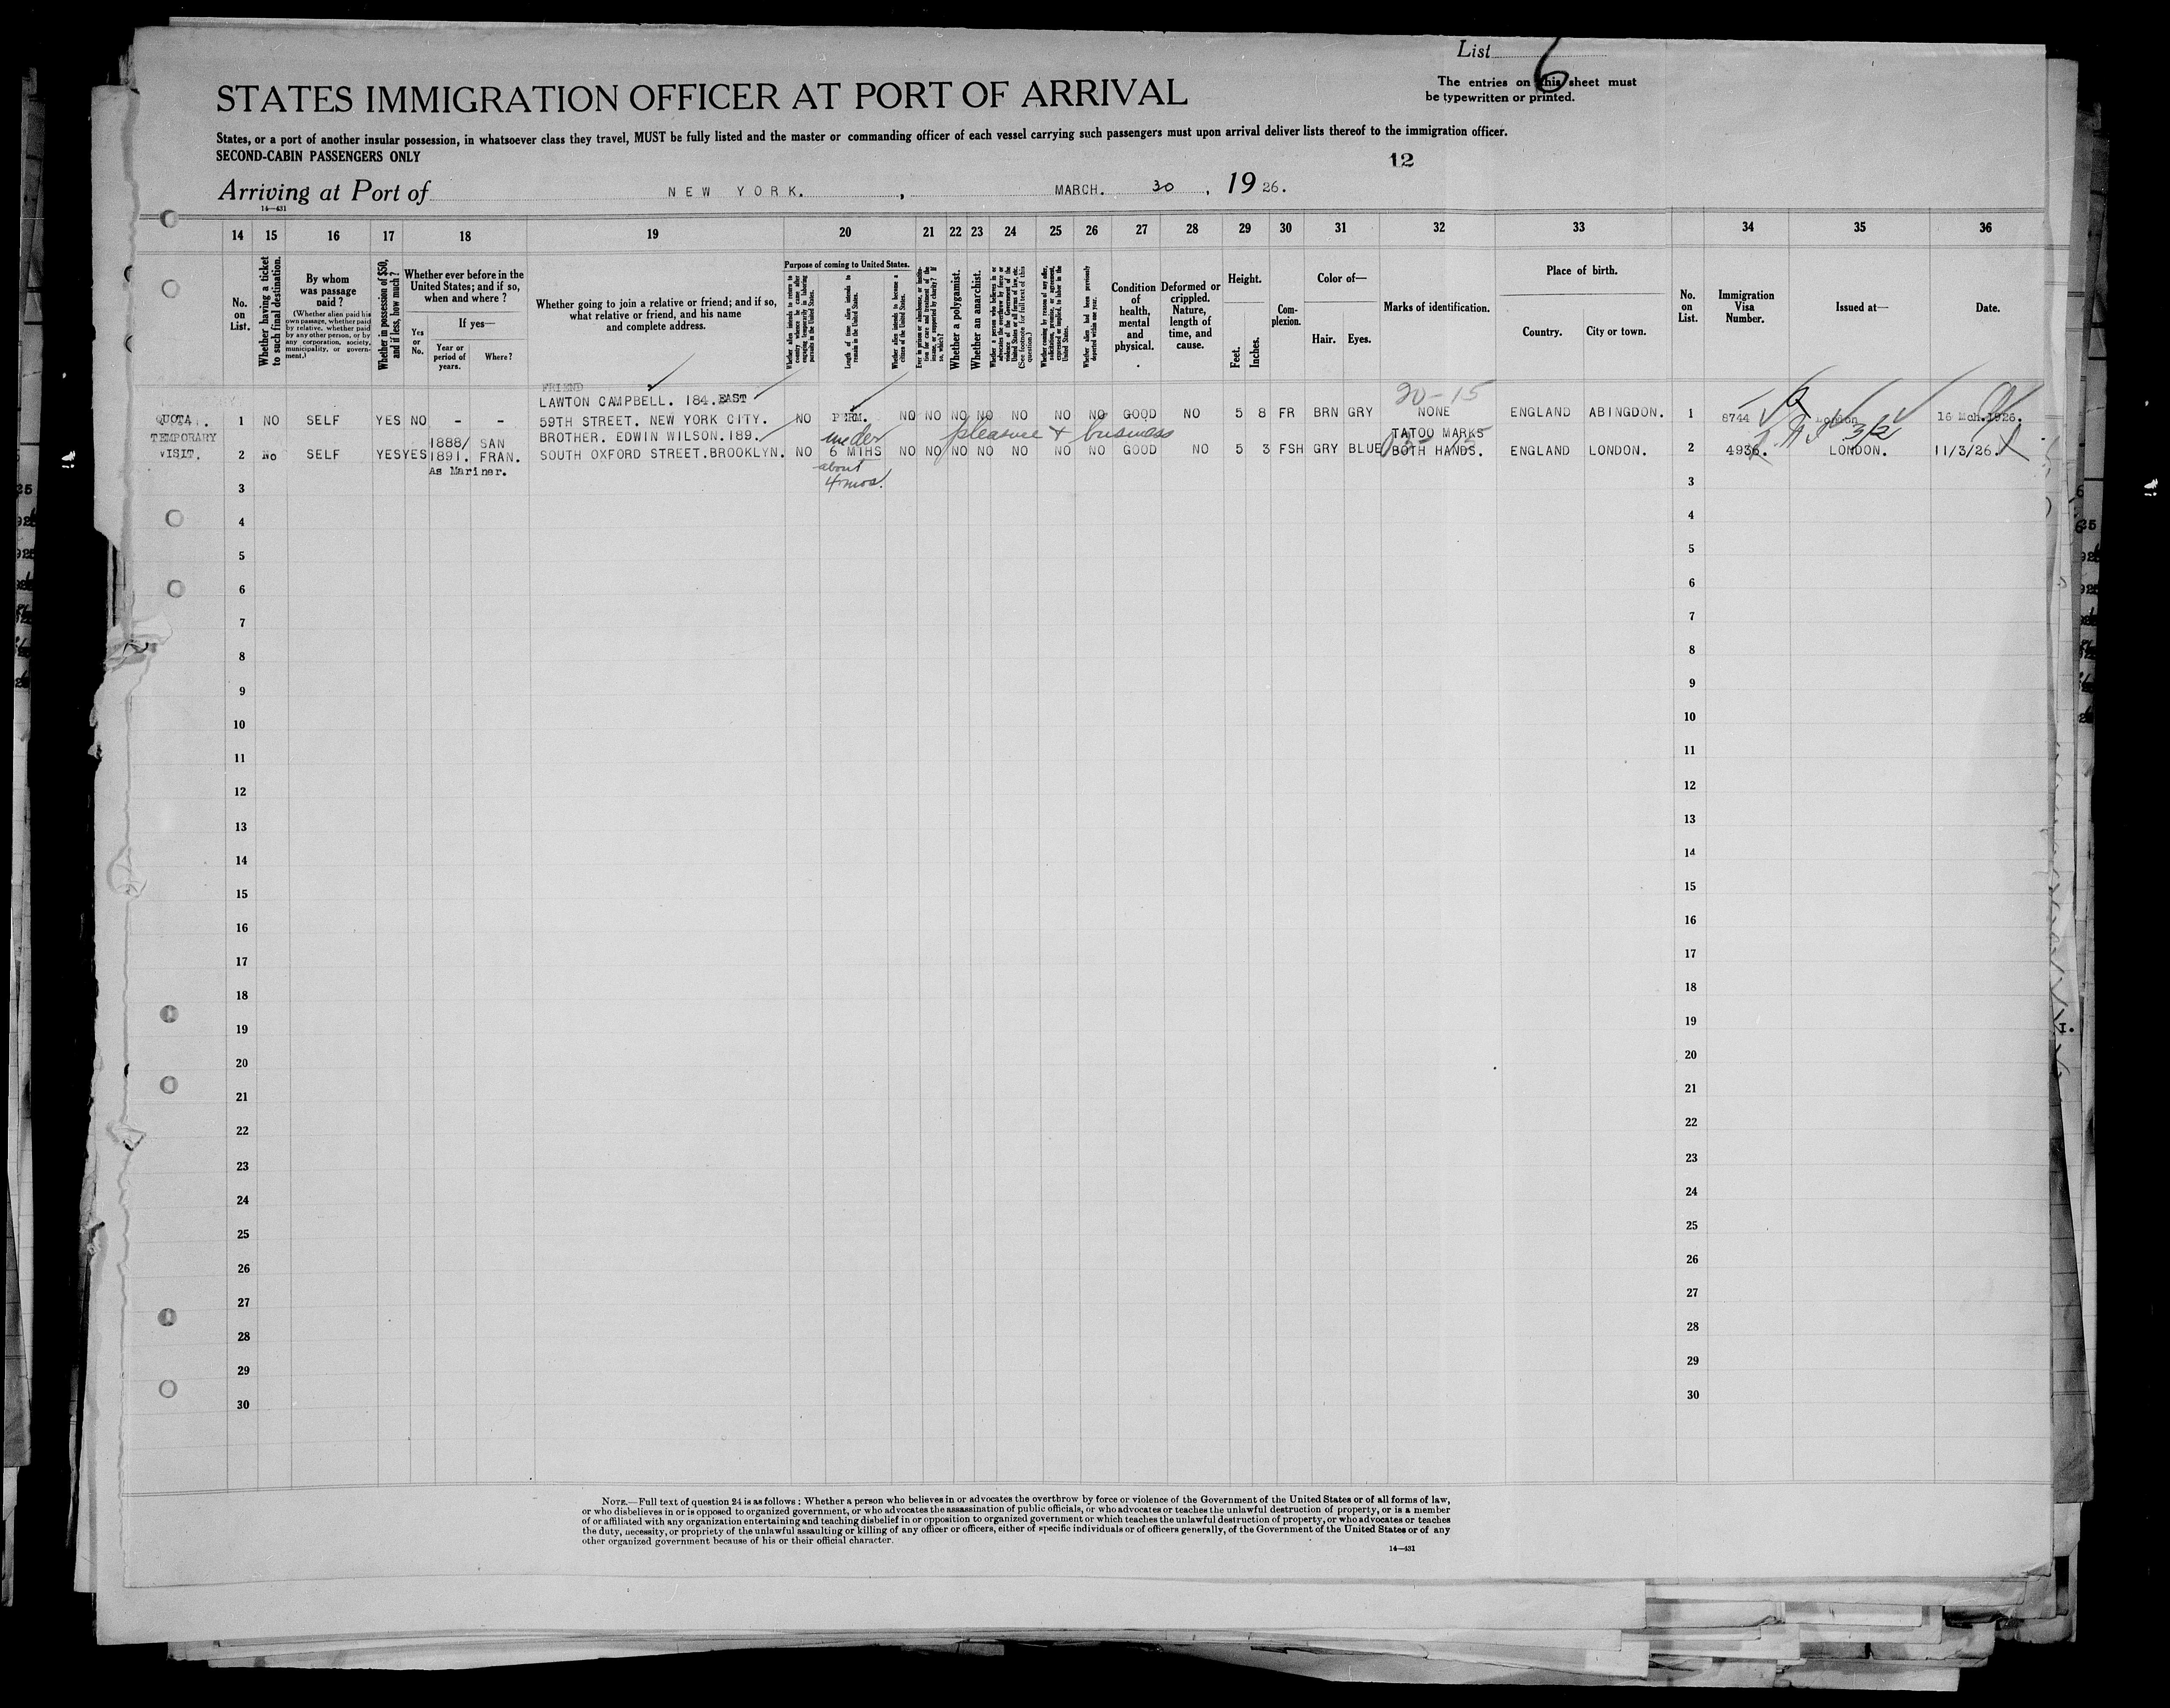 List 6
STATES IMMIGRATION OFFICER AT PORT OF ARRIVAL
The entries on this sheet must
be typewritten or printed.
States, or a port of another insular possession, in whatsoever class they travel, MUST be fully listed and the master or commanding officer of each vessel carrying such passengers must upon arrival deliver lists thereof to the immigration officer.
SECOND-CABIN PASSENGERS ONLY
12
Arriving at Port of NEW YORK. , MARCH. 30 , 19 26.
14—431
14 15 16 17 18 19 20 21 22 23 24 25 26 27 28 29 30 31 32 33 34 35 36
No. on List.
Whether having a ticket to such final destination.
By whom was passage paid?
(Whether alien paid his own passage, whether paid by relative, whether paid by any other person, or by any corporation, society, municipality, or government.)
Whether in possession of $50, and if less, how much?
Whether ever before in the United States; and if so, when and where?
Yes or No.
If yes—
Year or period of years.
Where?
Whether going to join a relative or friend; and if so, what relative or friend, and his name and complete address.
Purpose of coming to United States.
Whether alien intends to return to country whence he came after engaging temporarily in laboring pursuits in the United States.
Length of time alien intends to remain in the United States.
Whether alien intends to become a citizen of the United States.
Ever in prison or almshouse, or institution for care and treatment of the insane, or supported by charity? If so, which?
Whether a polygamist.
Whether an anarchist.
Whether a person who believes in or advocates the overthrow by force or violence of the Government of the United States or all forms of law, etc. (See footnote for full text of this question.)
Whether coming by reason of any offer, solicitation, promise, or agreement, expressed or implied, to labor in the United States.
Whether alien had been previously deported within one year.
Condition of health, mental and physical.
Deformed or crippled. Nature, length of time, and cause.
Height.
Feet.
Inches.
Complexion.
Color of—
Hair.
Eyes.
Marks of identification.
Place of birth.
Country.
City or town.
No. on List.
Immigration Visa Number.
Issued at—
Date.
FRIEND
LAWTON CAMPBELL. 184.EAST
20-15
QUOTA. 1 NO SELF YES NO - - 59TH STREET. NEW YORK CITY. NO PERM. NO NO NO NO NO NO NO GOOD NO 5 8 FR BRN GRY NONE ENGLAND ABINGDON. 1 8744 London 16 Mch.1926.
TEMPORARY 1888/ SAN BROTHER. EDWIN WILSON.189. under pleasure + business TATOO MARKS
VISIT. 2 No SELF YES YES 1891. FRAN. SOUTH OXFORD STREET.BROOKLYN. NO 6 MTHS NO NO NO NO NO NO NO GOOD NO 5 3 FSH GRY BLUE BOTH HANDS. ENGLAND LONDON. 2 4936. LONDON. 11/3/26.
As Mariner. about
3 4 mos. 3
4 4
5 5
6 6
7 7
8 8
9 9
10 10
11 11
12 12
13 13
14 14
15 15
16 16
17 17
18 18
19 19
20 20
21 21
22 22
23 23
24 24
25 25
26 26
27 27
28 28
29 29
30 30
NOTE.—Full text of question 24 is as follows: Whether a person who believes in or advocates the overthrow by force or violence of the Government of the United States or of all forms of law,
or who disbelieves in or is opposed to organized government, or who advocates the assassination of public officials, or who advocates or teaches the unlawful destruction of property, or is a member
of or affiliated with any organization entertaining and teaching disbelief in or opposition to organized government or which teaches the unlawful destruction of property, or who advocates or teaches
the duty, necessity, or propriety of the unlawful assaulting or killing of any officer or officers, either of specific individuals or of officers generally, of the Government of the United States or of any
other organized government because of his or their official character.
14—431